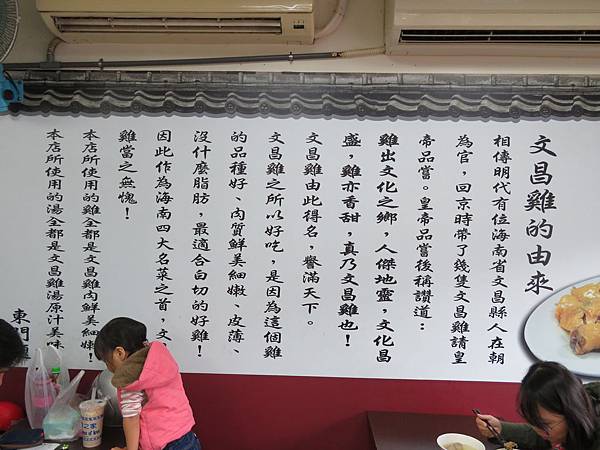 文昌雞的由來
相傳明代有位海南省文昌縣人在朝
為官，回京時帶了幾隻文昌雞請皇
帝品嘗。皇帝品嘗後稱讚道：
雞出文化之鄉，人傑地靈，文化昌
盛，雞亦香甜，真乃文昌雞也！
文昌雞由此得名，譽滿天下。
文昌雞之所以好吃，是因為這個雞
的品種好、肉質鮮美細嫩、皮薄、
沒什麼脂肪，最適合白切的好雞！
因此作為海南四大名菜之首，文
雞當之無愧！
本店所使用的雞全都是文昌雞肉鮮美細嫩！
本店所使用的湯全都是文昌雞湯原汁美味
東門
之家